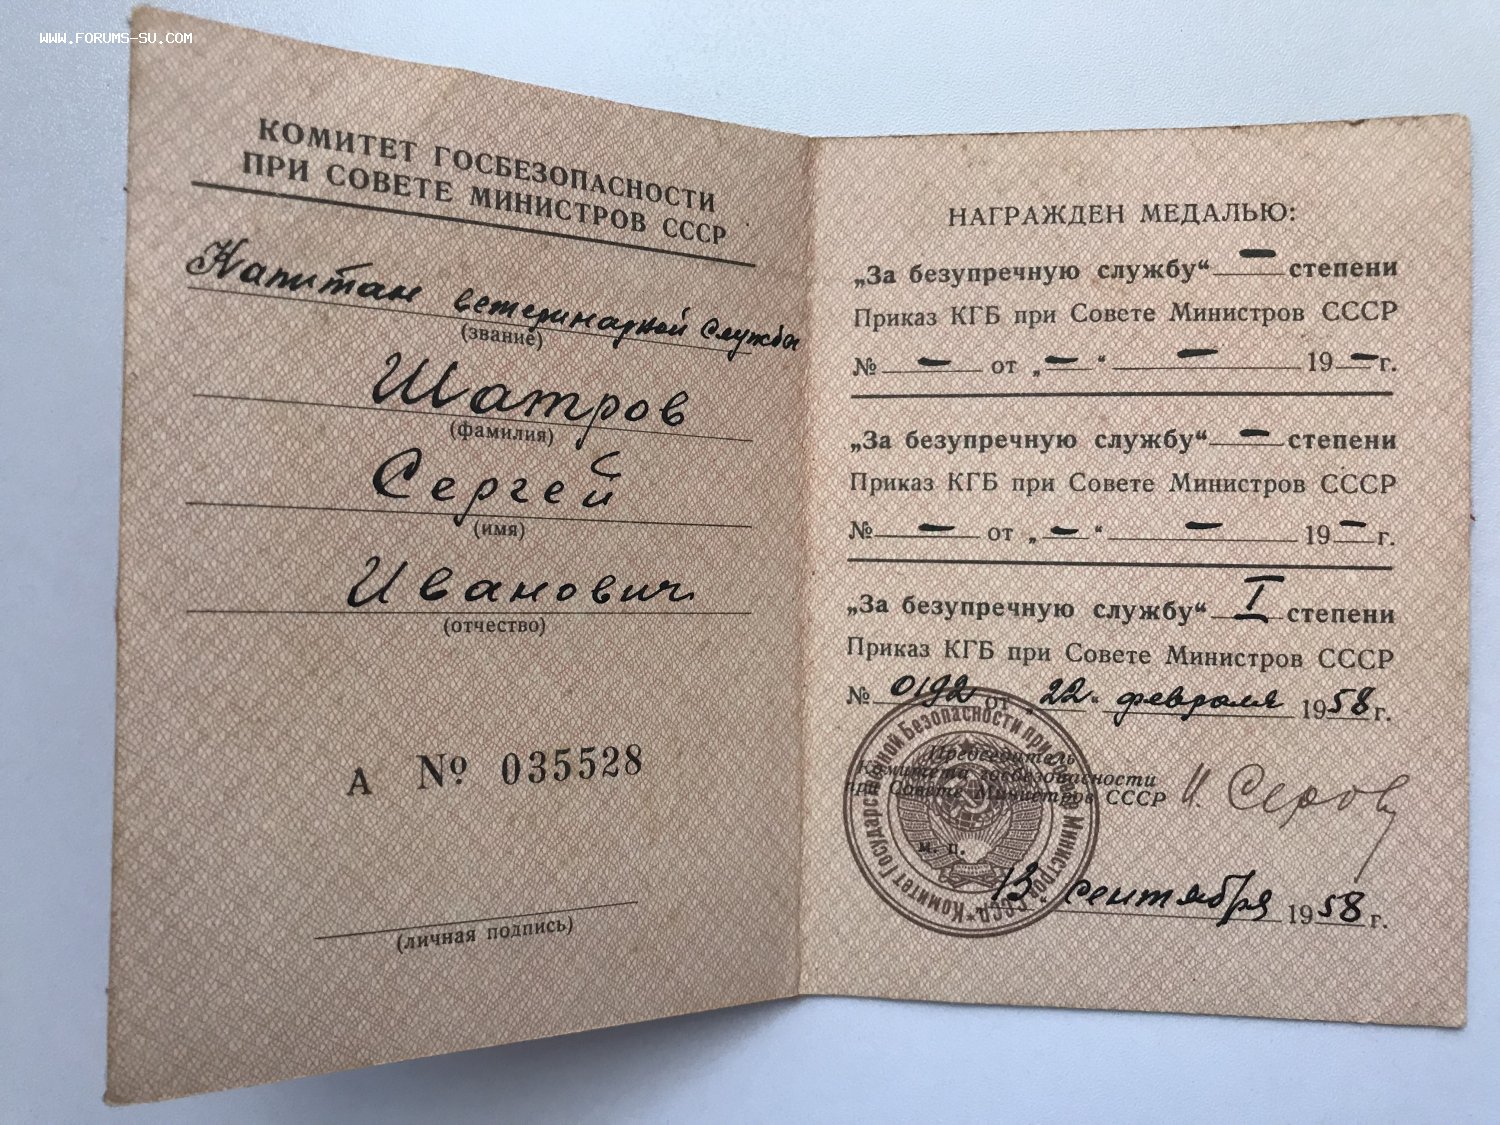 WWW.FORUMS-SU.COM
КОМИТЕТ ГОСБЕЗОПАСНОСТИ
ПРИ СОВЕТЕ МИНИСТРОВ СССР
Капитан ветеринарной службы
(звание)
Шатров
(фамилия)
Сергей
(имя)
Иванович
(отчество)
А № 035528
(личная подпись)
НАГРАЖДЕН МЕДАЛЬЮ:
„За безупречную службу“ — степени
Приказ КГБ при Совете Министров СССР
№ — от „—“ — 19 — г.
„За безупречную службу“ — степени
Приказ КГБ при Совете Министров СССР
№ — от „—“ — 19 — г.
„За безупречную службу“ I степени
Приказ КГБ при Совете Министров СССР
№ 0192 от „22“ февраля 1958 г.
Председатель
Комитета госбезопасности
при Совете Министров СССР И. Серов
м. п.
13 сентября 1958 г.
Комитет Государственной Безопасности при Совете Министров СССР